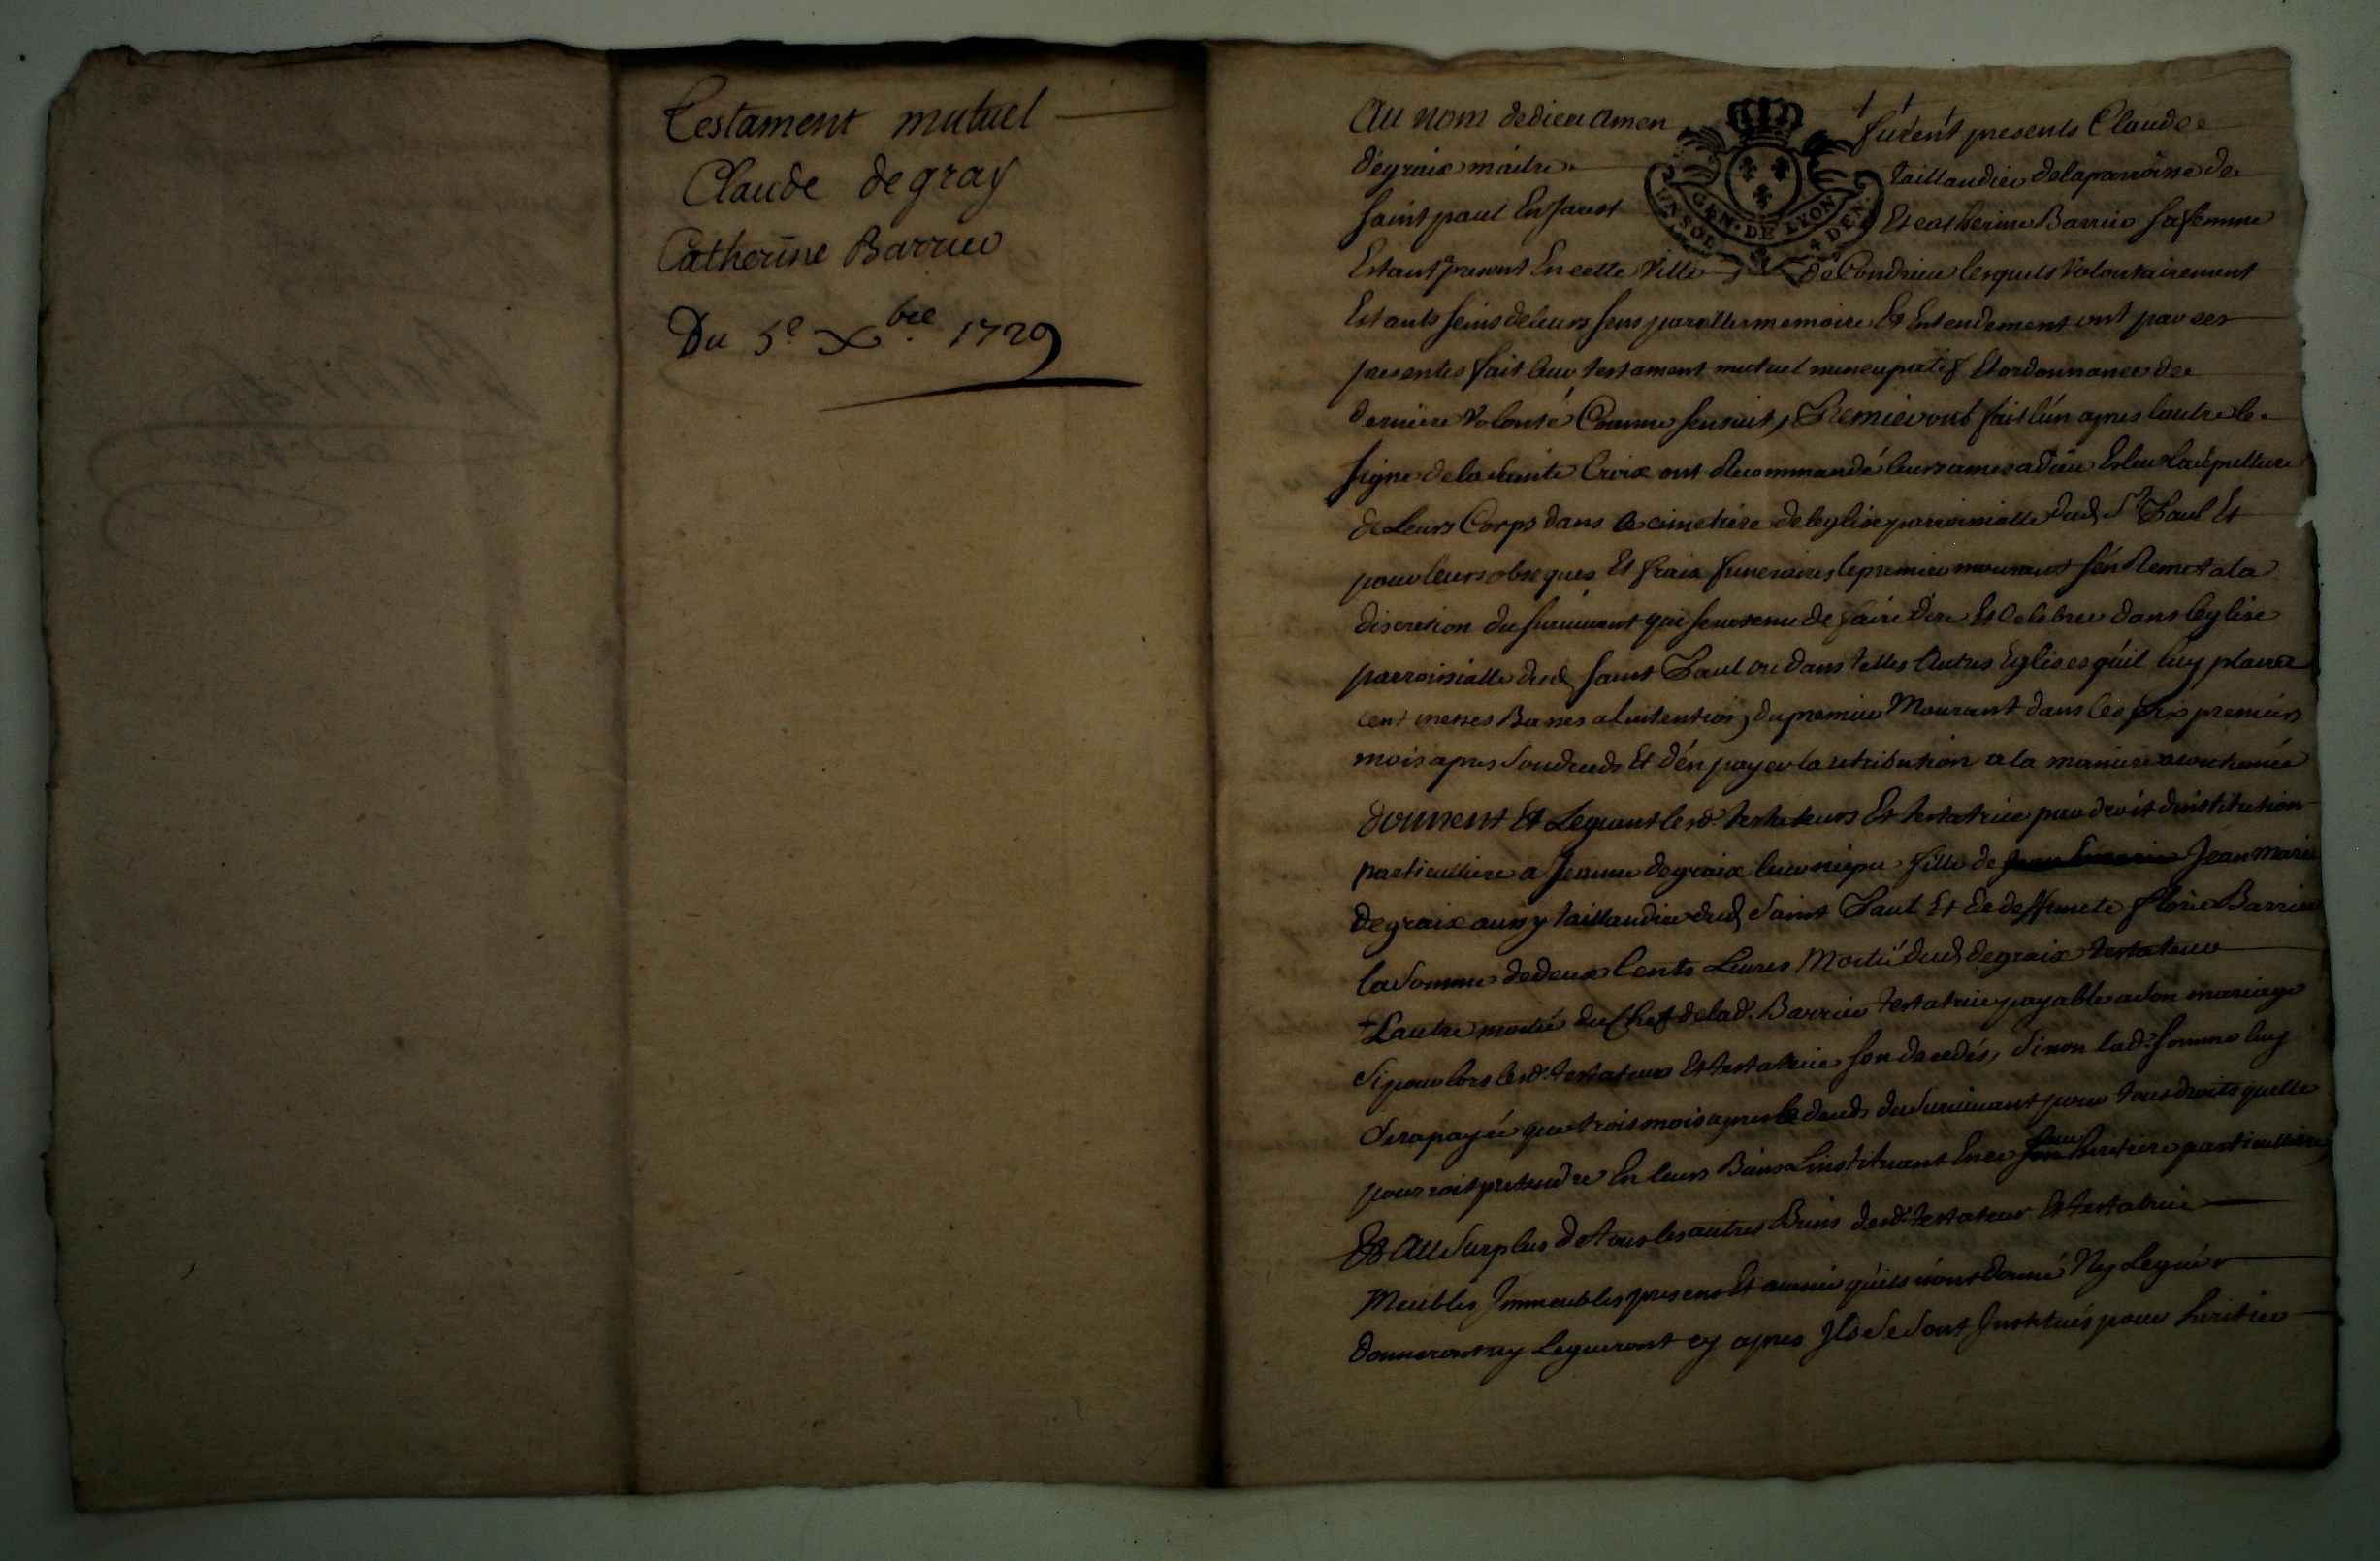 Testament mutuel
Claude degray
Catherine Barrier
Du 5e Xbre 1729
Au nom de dieu amen furent presents Claude
degraix maitre taillandier de la parroisse de
saint paul En Jarest Et catherine Barrier sa femme
Estant present En cette Ville de Condrieu lesquels Volontairement
Estants seins de leurs sens parolles memoire Et Entendement ont par ces
presentes fait leur testament mutuel nuncupatif Et ordonnance de
derniere Volonté Comme sensuit, Premier ont fait l'un apres lautre le
signe de la sainte Croix ont Recommandé leurs ames a dieu Esleu la sepulture
de Leurs Corps dans le cimetiere de leglise parroissialle dud St Paul Et
pour leurs obseques Et fraix funeraires le premier mourant s'en Remet a la
discretion du survivant qui sera tenu de faire dire Et Celebrer dans leglise
parroissialle dud saint Paul ou dans telles Autres Eglises qu'il luy plaira
cent messes Basses a lintention du premier Mourant dans les six premiers
mois apres son deceds Et d'en payer la retribution a la maniere acoutumée
donnent Et Leguent lesd. testateurs Et testatrice par droit dinstitution
particulliere a Jeanne degraix leur niepce fille de Jean marie
degraix aussy taillandier dud saint Paul Et de deffuncte florie Barrier
la somme de deux Cents Livres Moitié dud degraix testateur
+ Lautre moitié du Chef de lad. Barrier testatrice payable a son mariage
si pour lors lesd. testateurs Et testatrice son decedés, sinon lad. somme luy
sera payée que trois mois apres le deceds du survivant pour tous droits quelle
pourroit pretendre En leurs Biens Linstituant En ce leur heritiere particulliere
Et Au surplus de tous les autres Biens desd. testateur Et testatrice
Meubles Immeubles presens Et avenir qu'ils n'ont donné Ny Legués
donneront ny Legueront cy apres Ils se sont Institués pour heritier
GEN. DE LYON
UN SOL 4 DEN.